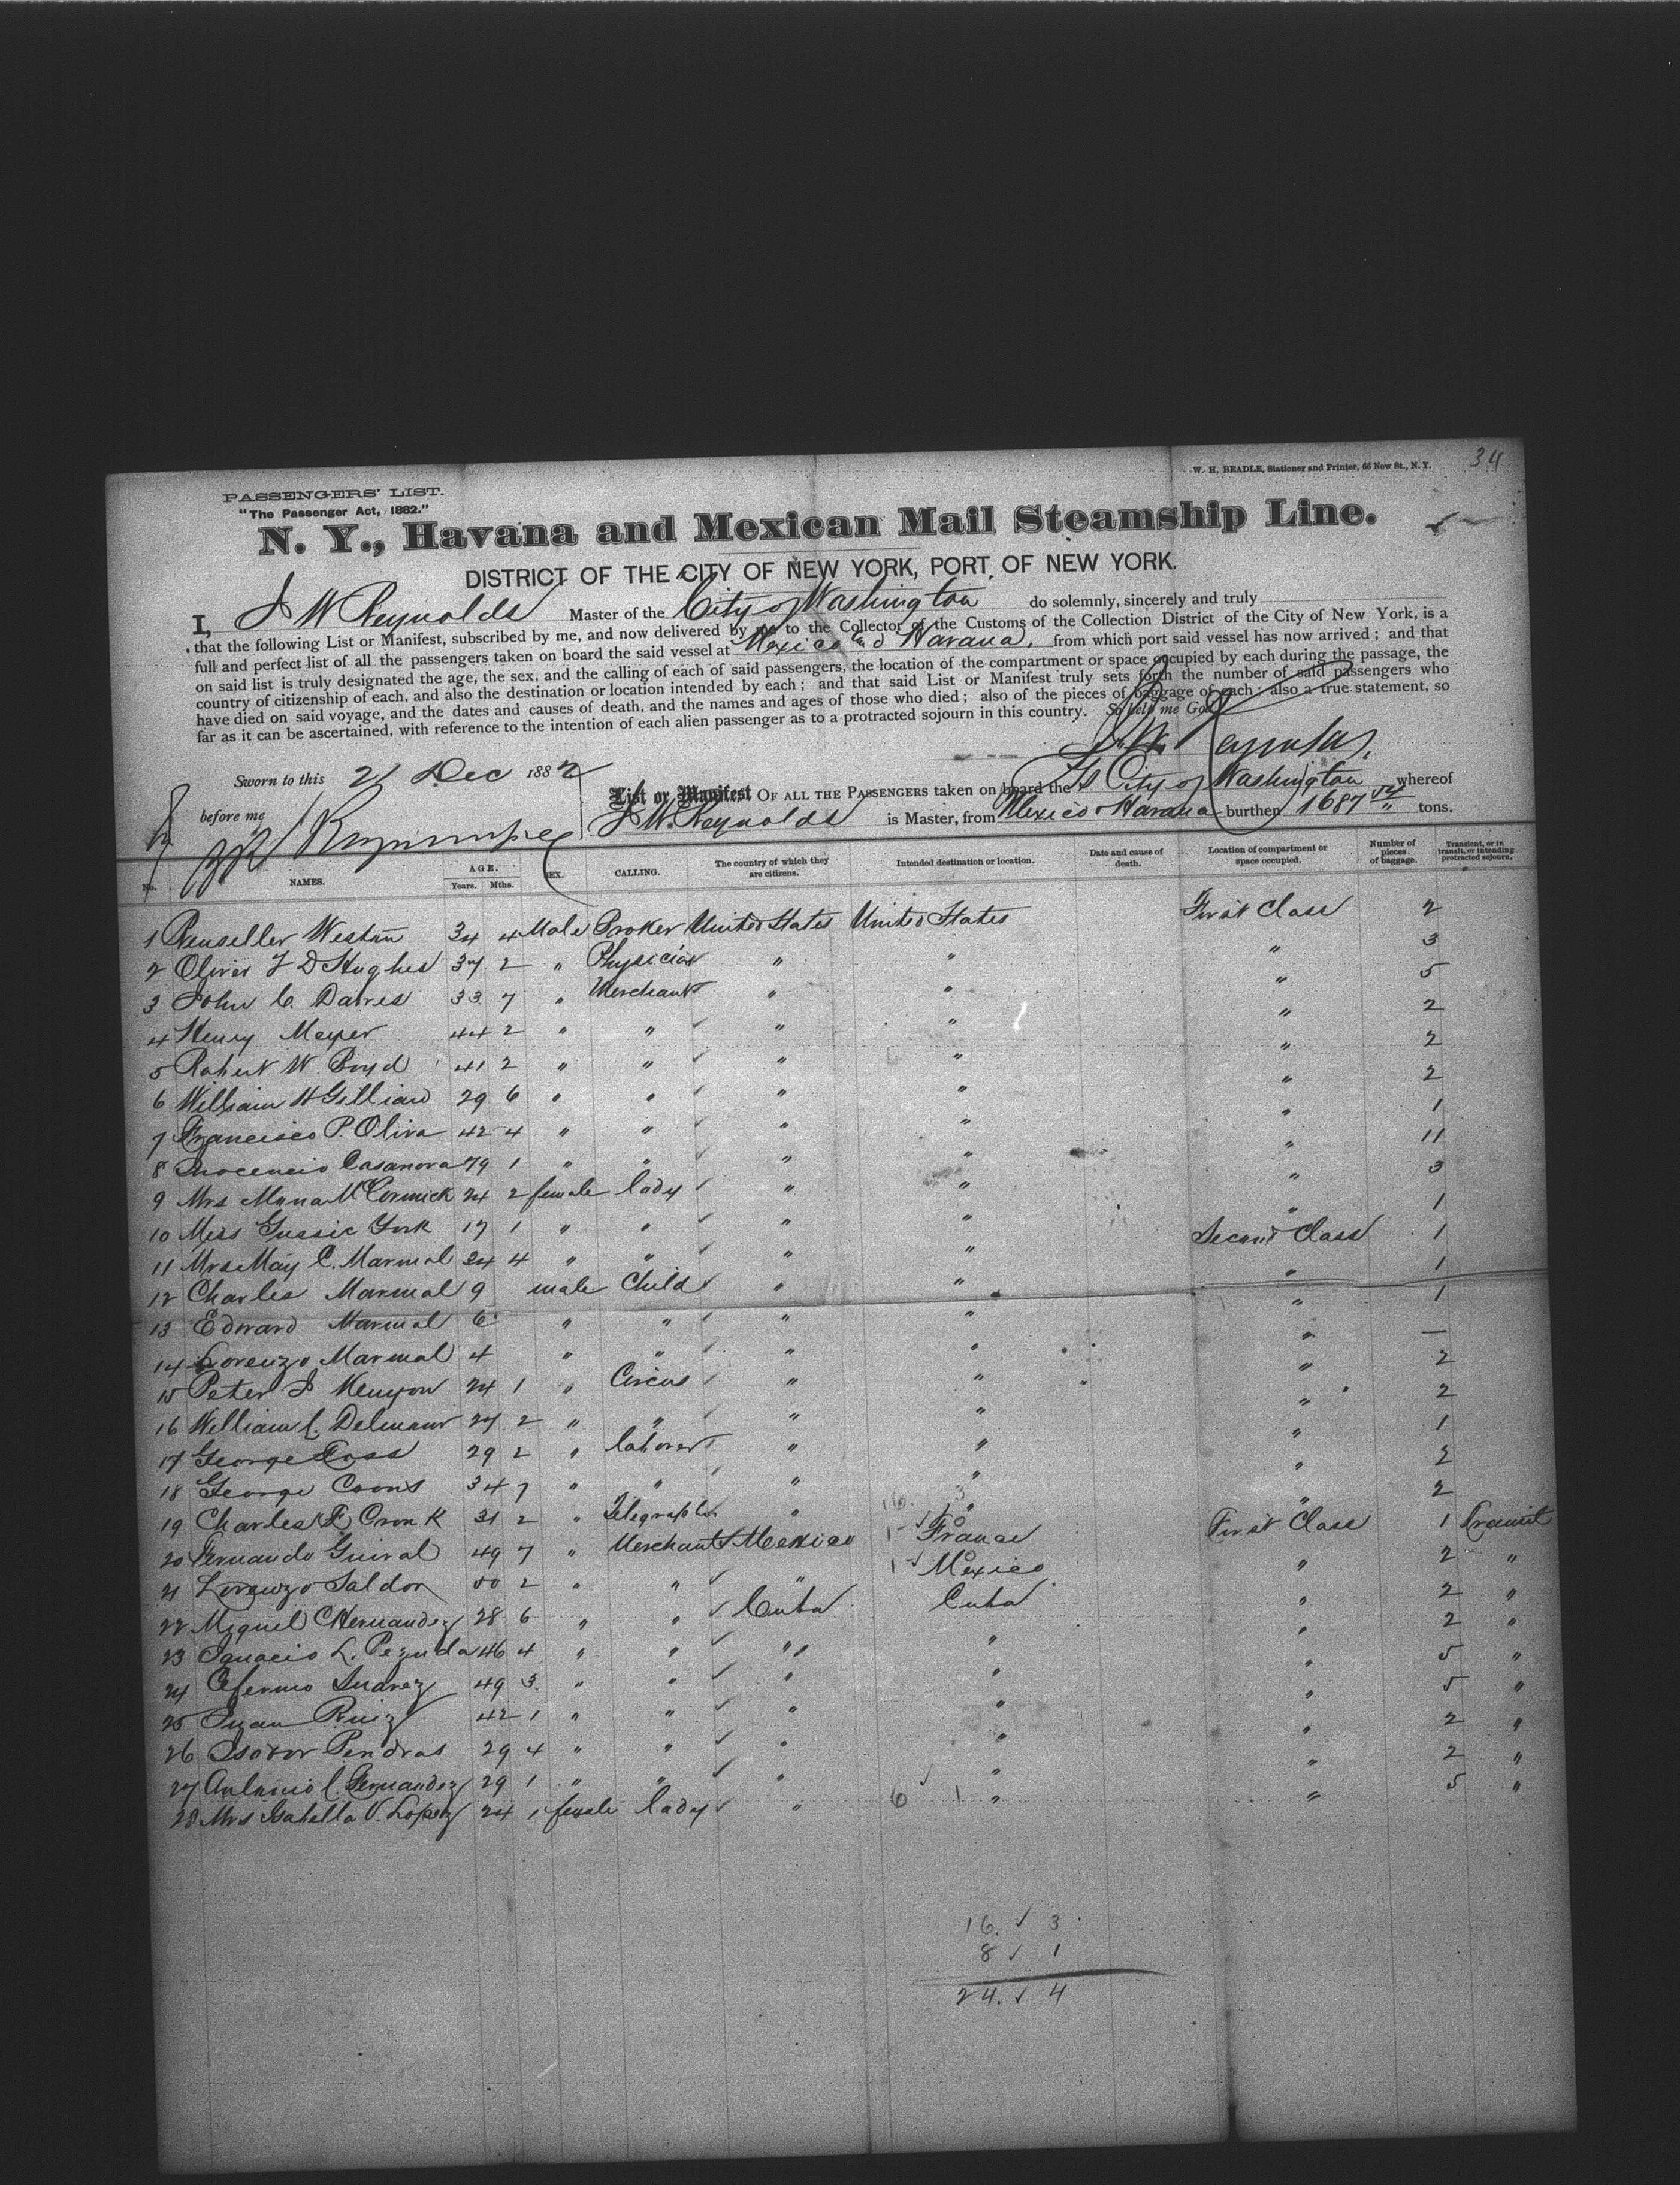 34
W. H. BEADLE, Stationer and Printer, 66 New St., N. Y.
PASSENGERS' LIST.
"The Passenger Act, 1882."
N. Y., Havana and Mexican Mail Steamship Line.
DISTRICT OF THE CITY OF NEW YORK, PORT OF NEW YORK.
I, J W Reynolds Master of the City of Washington do solemnly, sincerely and truly
that the following List or Manifest, subscribed by me, and now delivered by me to the Collector of the Customs of the Collection District of the City of New York, is a
full and perfect list of all the passengers taken on board the said vessel at Mexico and Havana, from which port said vessel has now arrived; and that
on said list is truly designated the age, the sex, and the calling of each of said passengers, the location of the compartment or space occupied by each during the passage, the
country of citizenship of each, and also the destination or location intended by each; and that said List or Manifest truly sets forth the number of said passengers who
have died on said voyage, and the dates and causes of death, and the names and ages of those who died; also of the pieces of baggage of each; also a true statement, so
far as it can be ascertained, with reference to the intention of each alien passenger as to a protracted sojourn in this country. So help me God
J. W. Reynolds
Sworn to this 21 Dec 1882
before me
List or Manifest OF ALL THE PASSENGERS taken on board the SS City of Washington whereof
J W. Reynolds is Master, from Mexico & Havana burthen 1687 tons.
No. NAMES. AGE. Years. Mths. SEX. CALLING. The country of which they are citizens. Intended destination or location. Date and cause of death. Location of compartment or space occupied. Number of pieces of baggage. Transient, or in transit, or intending protracted sojourn.
1 Renseller Weston 34 4 Male Broker United States United States First Class 2
2 Oliver F D Hughes 37 2 " Physician " " " 3
3 John C. Davies 33 7 " Merchant " " " 5
4 Henry Meyer 44 2 " " " " " 2
5 Robert W. Boyd 41 2 " " " " " 2
6 William H Gilliard 29 6 " " " " " 2
7 Francisco P. Oliva 42 4 " " " " " 1
8 Inocencio Casanova 79 1 " " " " " 11
9 Mrs Mana McCormick 24 2 female lady " " " 3
10 Miss Gussie York 17 1 " " " " " 1
11 Mrs May C. Marmal 24 4 " " " " Second Class 1
12 Charles Marmal 9 male Child " " " 1
13 Edward Marmal 6 " " " " " 1
14 Lorenzo Marmal 4 " " " " " —
15 Peter J Kenyon 24 1 " Circus " " " 2
16 William C. Delmour 27 2 " " " " " 2
17 George Cass 29 2 " laborer " " " 1
18 George Coons 34 7 " " " " " 2
19 Charles F. Cronk 31 2 " Telegrapher " " " 2
20 Fernando Guiral 49 7 " Merchant Mexico France First Class 1 transit
21 Lorenzo Saldor 50 2 " " " Mexico " 2 "
22 Miguel C Hernandez 28 6 " " Cuba Cuba " 2 "
23 Ignacio L. Pezuela 46 4 " " " " " 2 "
24 Ceferino Suarez 49 3 " " " " " 5 "
25 Juan Ruiz 42 1 " " " " " 5 "
26 Isodor Pendras 29 4 " " " " " 2 "
27 Antonio C. Fernandez 29 1 " " " " " 2 "
28 Mrs Isabella V. Lopez 24 1 female lady " 6 1 " " 5 "
16. ✓ 3
8 ✓ 1
24. ✓ 4